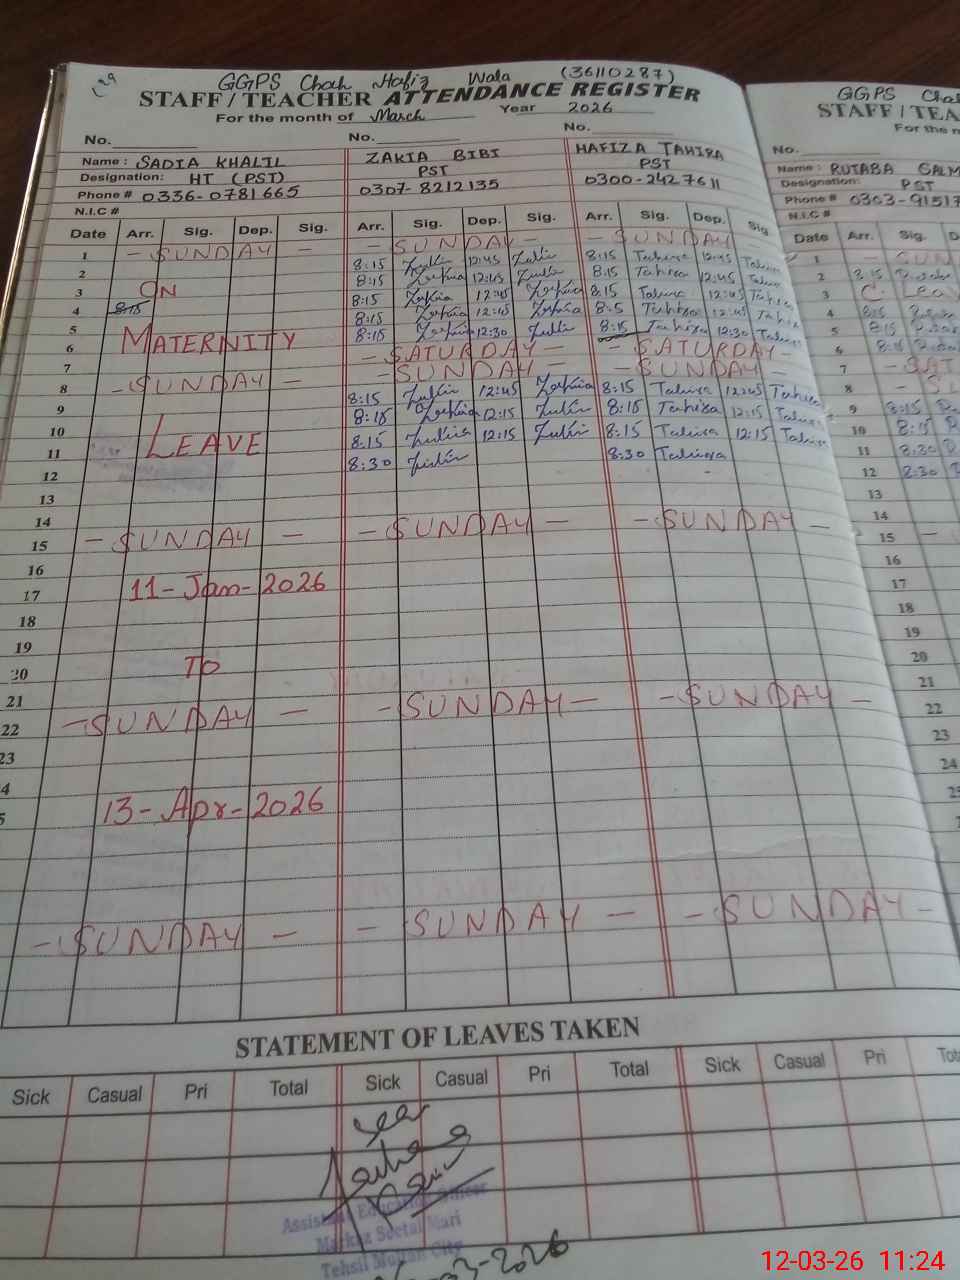 GGPS Chah Hafiz Wala (36110287)
STAFF / TEACHER ATTENDANCE REGISTER
For the month of March Year 2026
No. No. No.
Name : SADIA KHALIL ZAKIA BIBI HAFIZA TAHIRA
Designation: HT (PST) PST PST
Phone # 0336-0781665 0307-8212135 0300-2427611
N.I.C #
Date Arr. Sig. Dep. Sig. Arr. Sig. Dep. Sig. Arr. Sig. Dep. Sig.
1 - SUNDAY - - SUNDAY - - SUNDAY -
2 8:15 12:45 8:15 Tahira 12:45
3 ON 8:15 Zakia 12:45 8:15 Tahira 12:45
4 8:15 8:15 Zakia 12:45 Zakia 8:15 Tahira 12:45 Tahira
5 8:15 Zakia 12:45 Zakia 8:5 Tahira 12:45 Tahira
6 MATERNITY 8:15 Zakia 12:30 8:15 Tahira 12:30 Tahira
7 - SATURDAY - - SATURDAY -
8 - SUNDAY - - SUNDAY - - SUNDAY -
9 8:15 12:45 Zakia 8:15 Tahira 12:45 Tahira
10 8:15 Zakia 12:15 8:15 Tahira 12:15 Tahira
11 LEAVE 8:15 12:15 8:15 Tahira 12:15 Tahira
12 8:30 8:30 Tahira
13
14
15 - SUNDAY - - SUNDAY - - SUNDAY -
16
17 11-Jan-2026
18
19
20 TO
21
22 - SUNDAY - - SUNDAY - - SUNDAY -
23
4
5 13-Apr-2026
- SUNDAY - - SUNDAY - - SUNDAY -
STATEMENT OF LEAVES TAKEN
Sick Casual Pri Total Sick Casual Pri Total Sick Casual Pri Tot
Assistant Education Officer
Markaz Mari
Tehsil Multan City
-2026
GGPS Cha
STAFF / TEA
For the m
No.
Name : RUTABA SALM
Designation: PST
Phone # 0303-9151
N.I.C #
Date Arr. Sig. D
1 - SUN
2 8:15
3 C. Leav
4 8:15
5 8:15
6 8:15
7 - SAT
8 - S
9 8:15
10 8:15
11 8:30
12 8:30
13
14
15
16
17
18
19
20
21
22
23
24
25
12-03-26 11:24